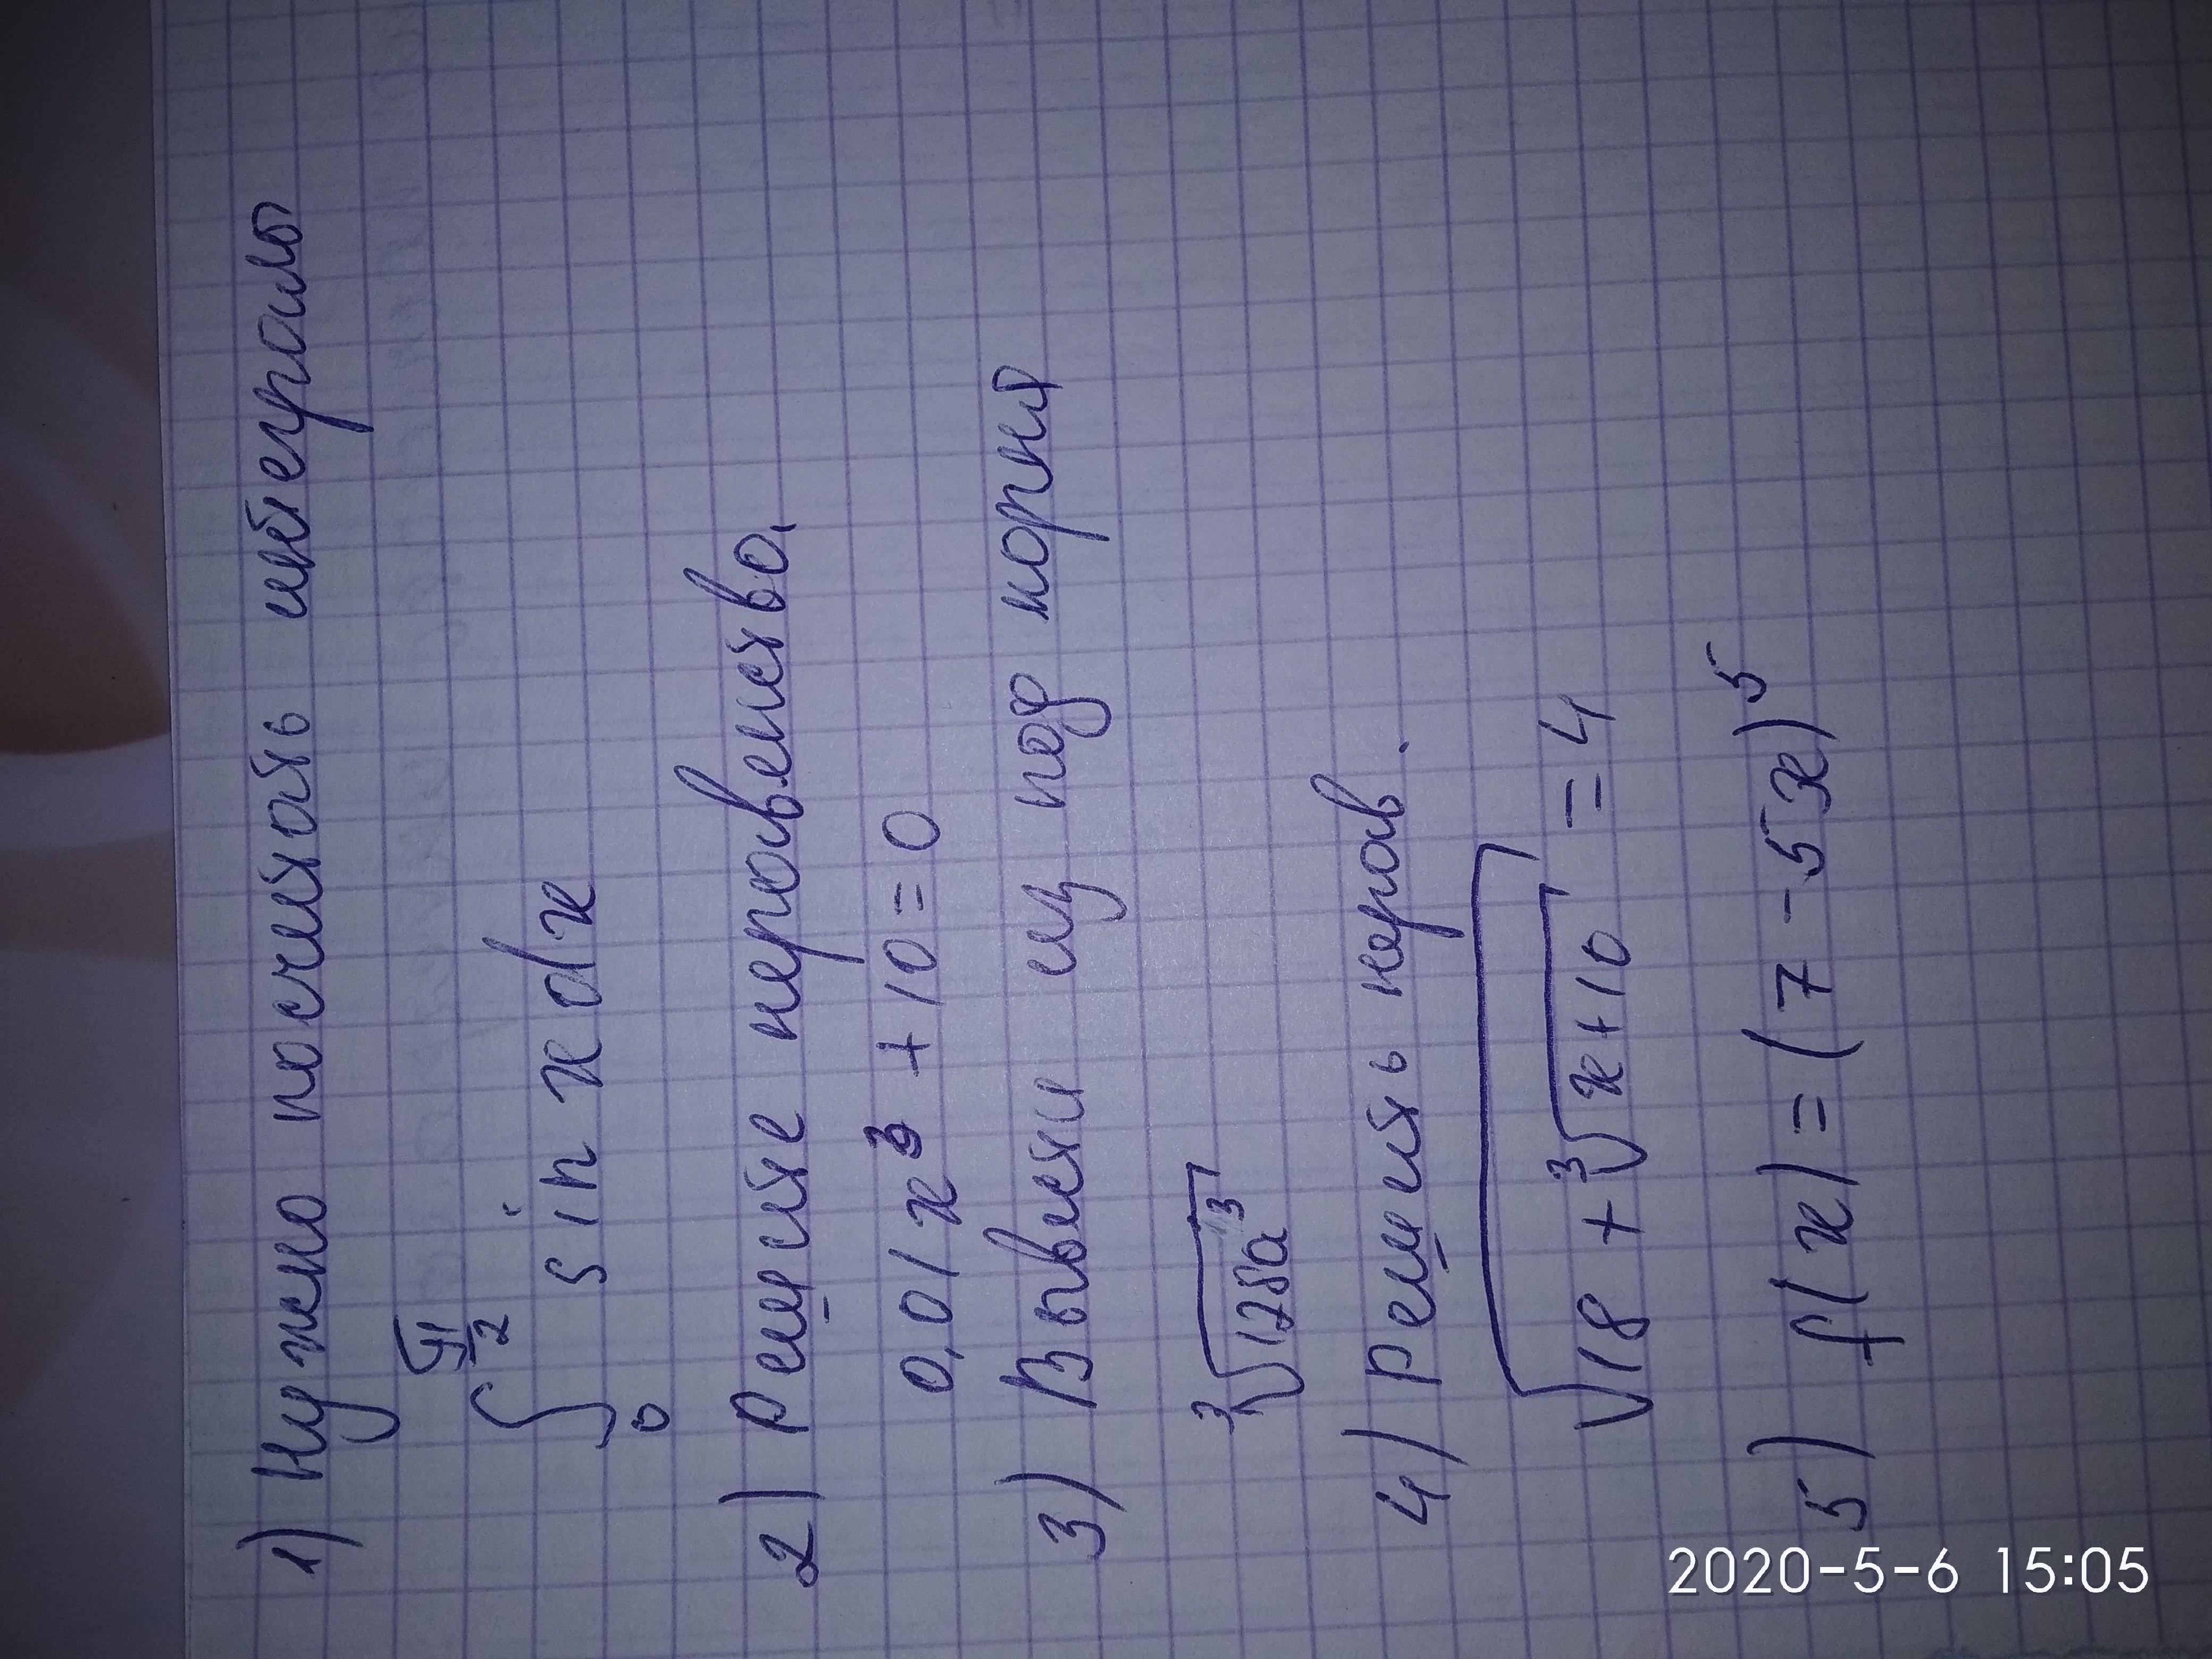 1) Нужно посчитать интегралы
∫₀^(π/2) sin x dx
2) Решите неравенство.
0,01x³ + 10 = 0
3) Вывести из под корня
∛(128a³)
4) Решить нерав.
√(18 + ∛(x+10)) = 4
5) f(x) = (7 - 5x)⁵
2020-5-6 15:05